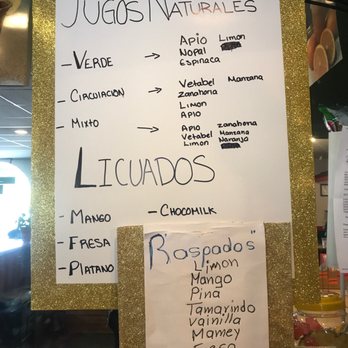 JUGOS NATURALES
- VERDE → Apio Limon
Nopal
Espinaca
- CIRCULACION → Vetabel Manzana
Zanahoria
Limon
Apio
- MIXTO → Apio Zanahoria
Vetabel Manzana
Limon Naranja
LICUADOS
- MANGO - CHOCOMILK
- FRESA
- PLATANO
Raspados"
Limon
Mango
Pina
Tamarindo
Vainilla
Mamey